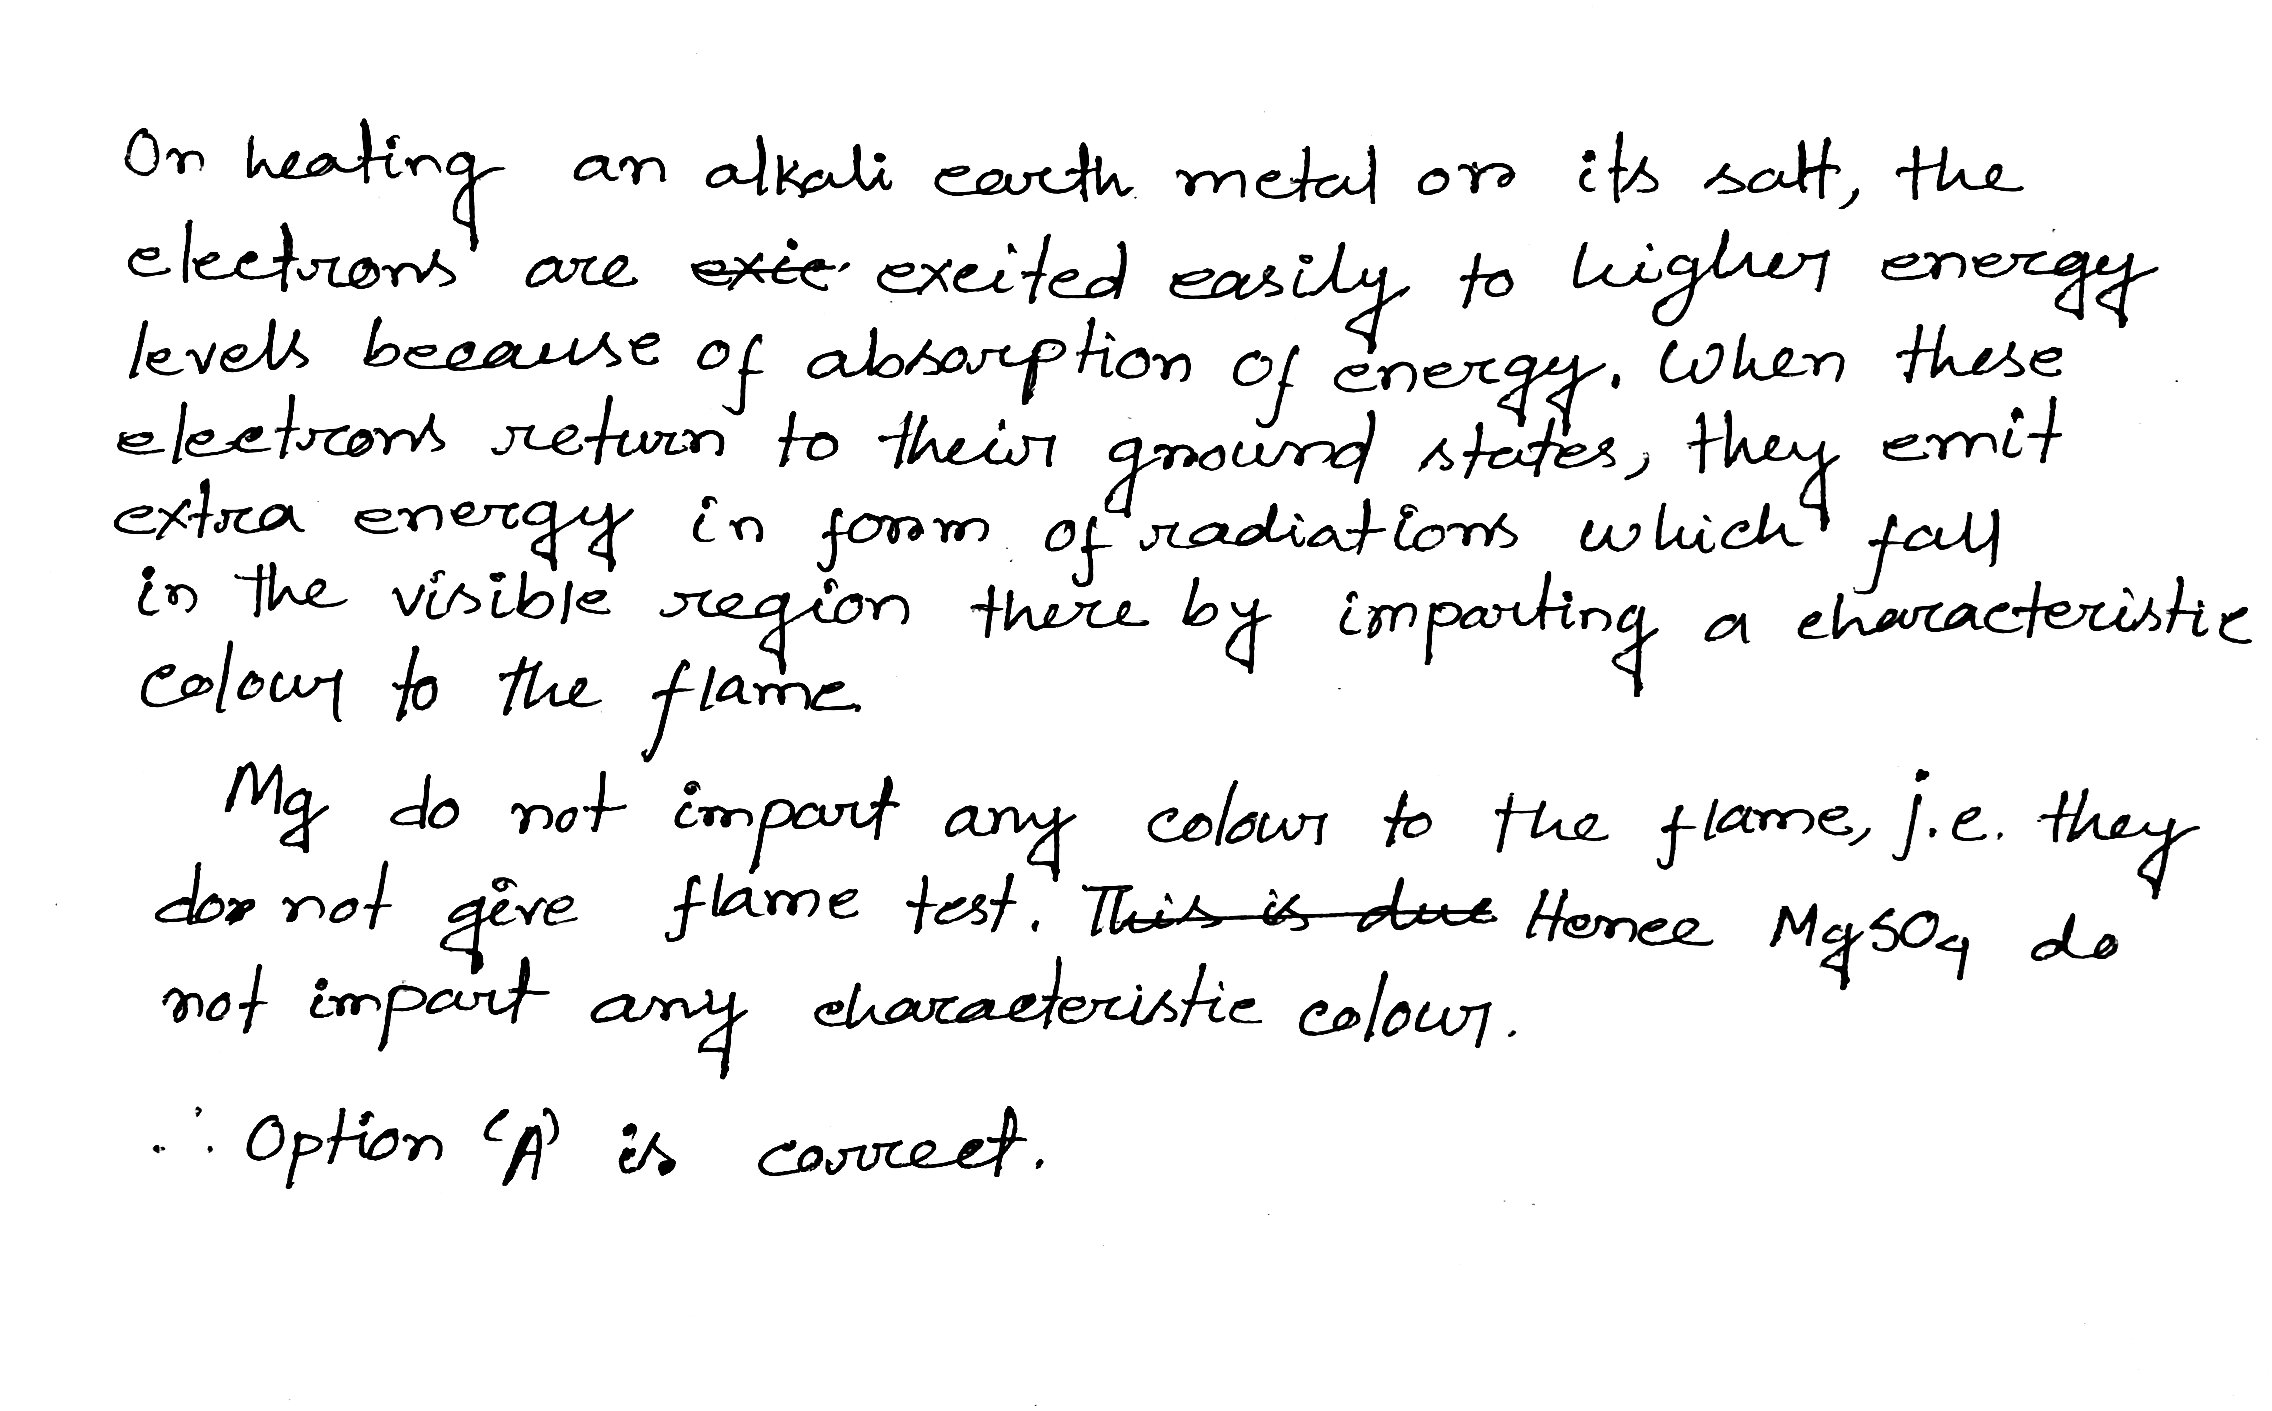 On heating an alkali earth metal or its salt, the
electrons are exic excited easily to higher energy
levels because of absorption of energy. When these
electrons return to their ground states, they emit
extra energy in form of radiations which fall
in the visible region there by imparting a characteristic
colour to the flame.
Mg do not impart any colour to the flame, i.e. they
do not give flame test. This is due Hence MgSO4 do
not impart any characteristic colour.
∴ Option 'A' is correct.